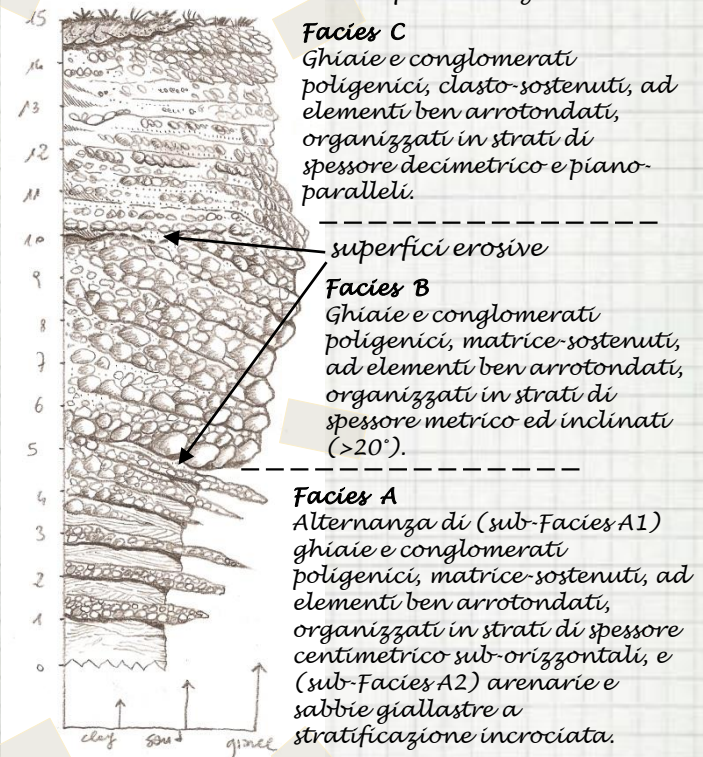 15
Facies C
Ghiaie e conglomerati
poligenici, clasto-sostenuti, ad
elementi ben arrotondati,
organizzati in strati di
spessore decimetrico e piano-
paralleli.
14
13
12
11
10
superfici erosive
9
Facies B
Ghiaie e conglomerati
poligenici, matrice-sostenuti,
ad elementi ben arrotondati,
organizzati in strati di
spessore metrico ed inclinati
(>20°).
8
7
6
5
Facies A
Alternanza di (sub-Facies A1)
ghiaie e conglomerati
poligenici, matrice-sostenuti, ad
elementi ben arrotondati,
organizzati in strati di spessore
centimetrico sub-orizzontali, e
(sub-Facies A2) arenarie e
sabbie giallastre a
stratificazione incrociata.
4
3
2
1
0
clay sand gravel